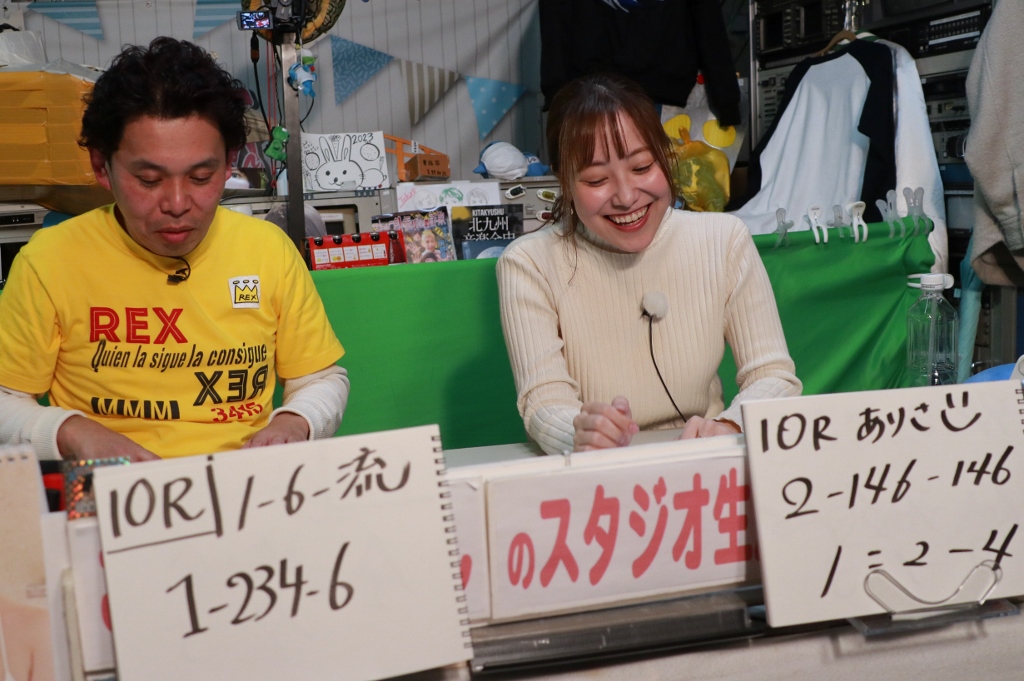 2023
KITAKYUSHU
北九州
音楽全史
REX
REX
Quien la sigue la consigue
REX
MMM
3415
10R 1-6-流
1-234-6
のスタジオ生
10R ありさ
2-146-146
1=2-4